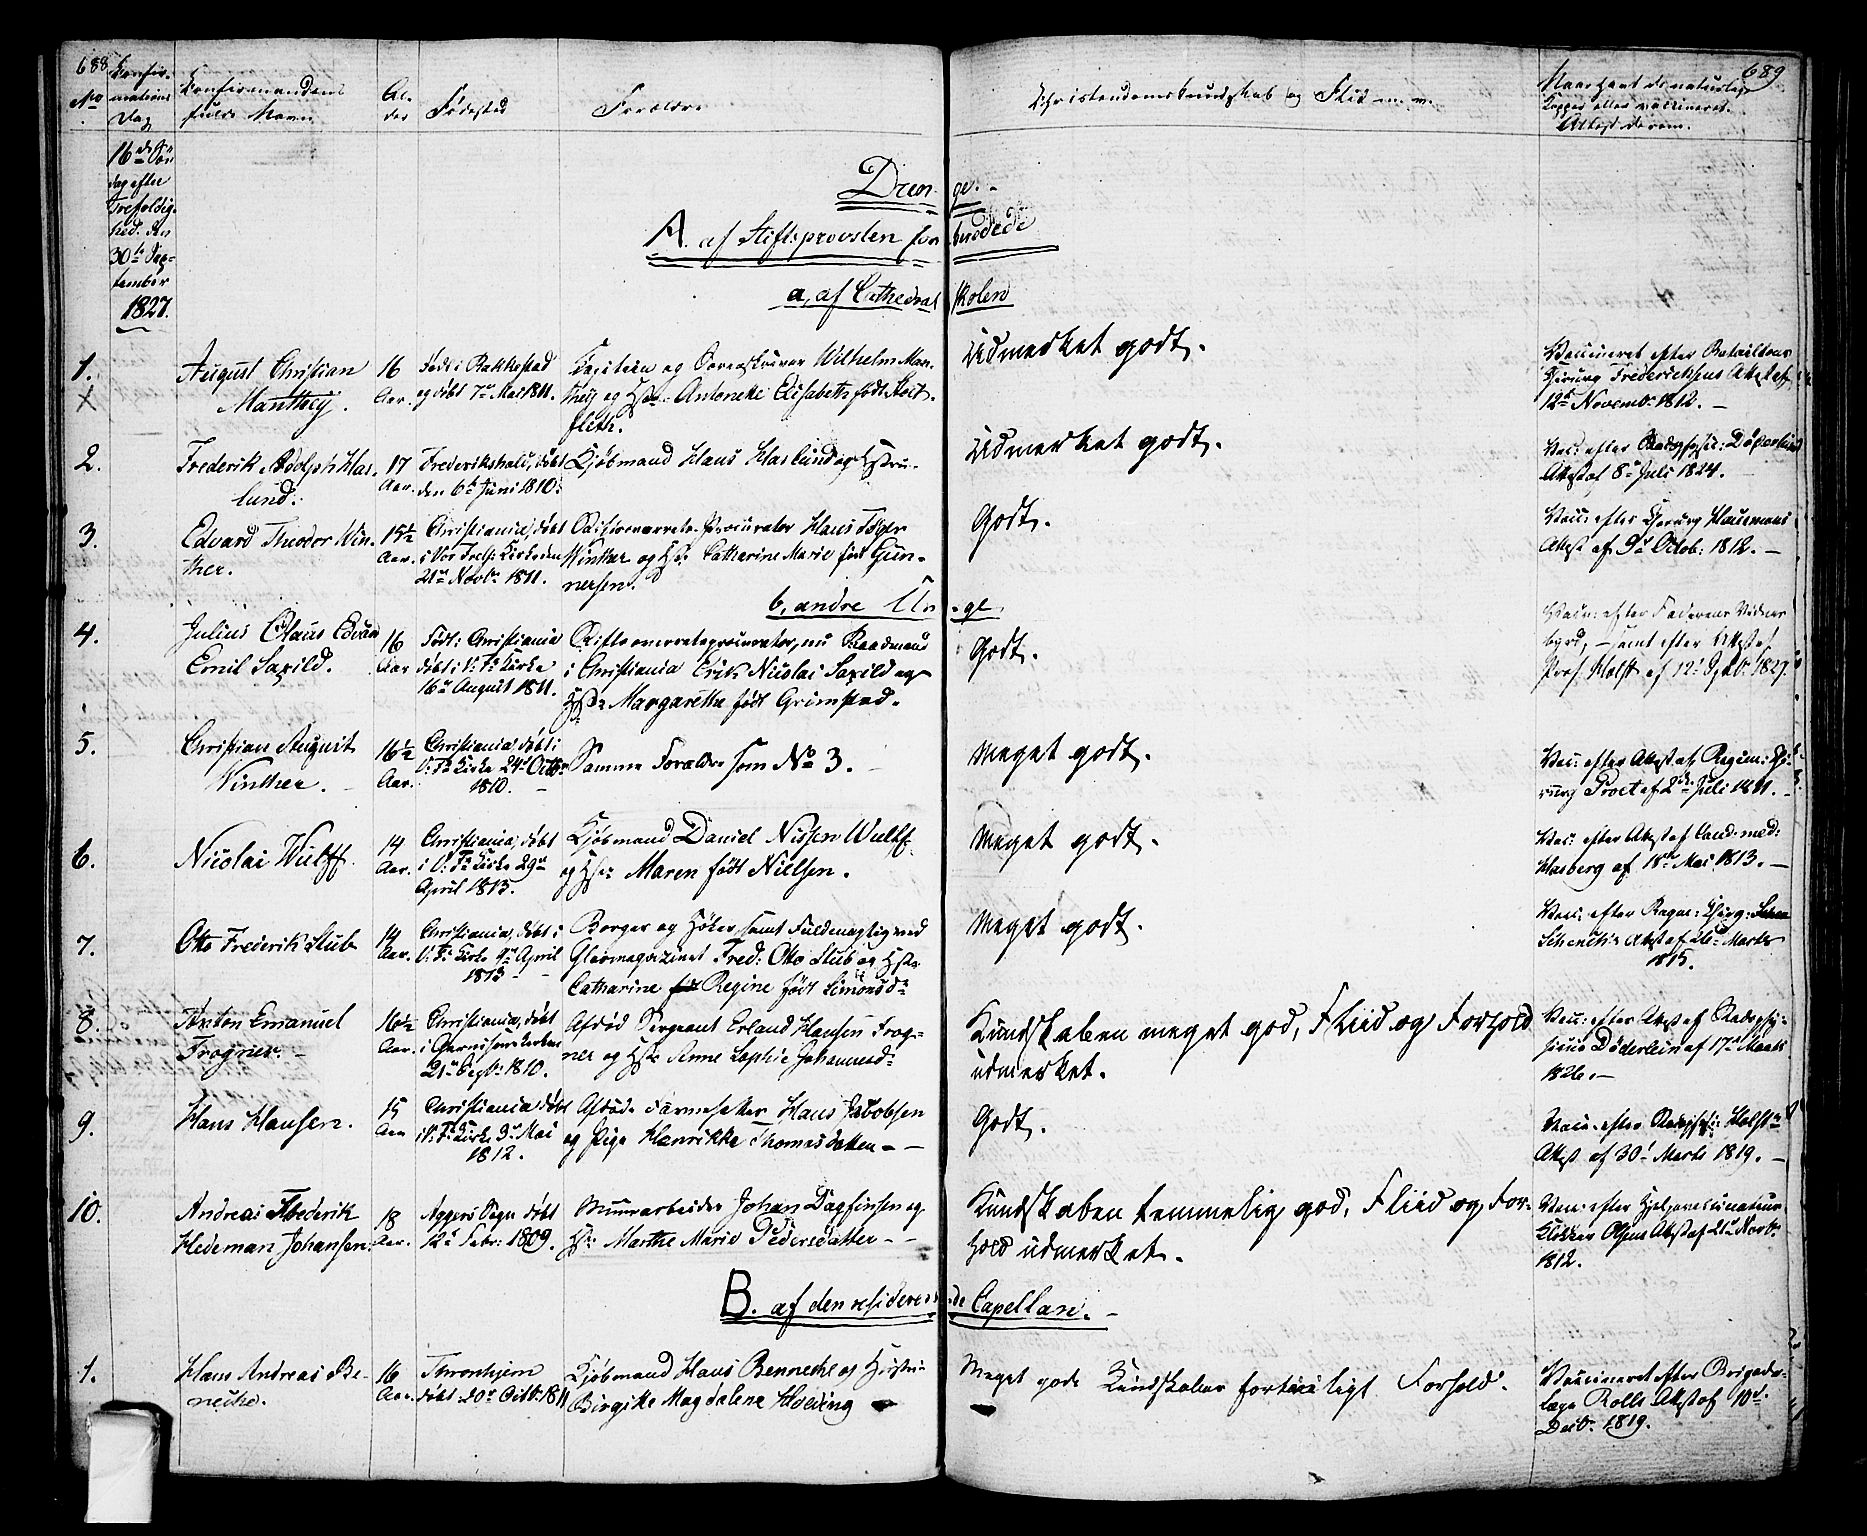 688
689
No
Confir-
mations
Dag
Confirmandens
fulde Navn
Al-
der
Fødested
Forældre
Christendomskundskab og Flid m. v.
Naar havt de naturlige
Kopper eller vaccineret.
Attest derom.
16de Søn
dag efter
Trefoldig-
hed: den
30te Sep-
tember
1827.
Dren- ge.
A. af Stiftsprovsten forberedede
a, af Cathedral skolen
1.
X
August Christian
Manthey.
16
Aar.
Født i Rakkestad
og døbt 7de Mai 1811.
Capitein og Sorenskriver Wilhelm Man-
they og Hstr. Antonette Elisabeth født Holt-
fleth.
Udmerket godt.
Vaccineret efter Batallions
Chirurg Frederichsens Attest af
12te Novembr 1812.
2.
Frederik Adolph Has-
lund.
17
Aar.
Frederikshald, døbt
den 6te Juni 1810.
Kjøbmand Hans Haslund og Hstru.
Udmerket godt.
Attest af 8de Juli 1824.
3.
Edvard Theodor Win-
ther.
15½
Aar.
Christiania, døbt
i Vor Frels: Kirke den
21de Novbr 1811.
Stiftsoverrets-Procurator Hans Tøger
Winther og Hstr. Catharine Marie født Gun-
nersen.
Godt.
Vacc: efter Chirurg Hausmans
Attest af 9de Octob: 1812.
b, andre Un- ge
4.
Julius Claus Edvard
Emil Saxild.
16
Aar
Født i Christiania
døbt i V: Fr: Kirke
16de August 1811.
Stiftsoverretsprocurator, nu Raadmand
i Christiania Erik Nicolai Saxild og
Hstr. Margarethe født Grimstad.
Godt.
Vacc: efter Faderens Vidnes-
byrd, samt efter Attest af
Prof. Holst af 12te Sptbr: 1827.
5.
Christian August
Winther.
16½
Aar.
Christiania døbt i
V: Fr: Kirke 24de Octbr
1810.
Samme Forældre som No 3.
Meget godt.
Vacc: efter Attest af Regim: Chi-
rurg Proet af 2den Juli 1811.
6.
Nicolai Wulff.
14
Aar.
Christiania, døbt
i V: Fr: Kirke 29de
April 1813.
Kjøbmand Daniel Nissen Wulff
og Hstr: Maren født Nielsen.
Meget godt.
Vac: efter Attest af Cand: med:
Hasberg af 18de Mai 1813.
7.
Otto Frederik Stub
14
Aar.
Christiania, døbt i
V: Fr: Kirke 9de April
1813
Borger og Høker, samt Fuldmægtig ved
Glasmagazinet Fred: Otto Stub og Hstr
Catharine Regine født Simonsdr
Meget godt.
Vacc: efter Regm: Chirg:
Schencks Attest af 26de Marts
1815.
8.
Anton Emanuel
Frogner.
16½
Aar.
Christiania, døbt
i Garnisonskirken
21de Septbr 1810.
Afdød Sergeant Erland Hansen Frog-
ner og Hstr Anne Sophie Johannesdr
Kundskaben meget god, Fliid og Forhold
udmerket.
Vacc: efter Attest af Stadsphy-
sicus Døderlein af 17de Marts
1826.
9.
Hans Hansen.
15
Aar
Christiania døbt
i V: Fr: Kirke 3de Mai
1812.
Afdøde Farmesøtter Hans Jacobsen
og Pige Henrikke Thomasdatter
Godt.
Vacc: efter Stadsphysic: Holsts
Attest af 30te Marts 1819.
10.
Andreas Frederik
Hedeman Johansen.
18
Aar.
Aggers Sogn døbt
12te Febr: 1809.
Muurarbeider Johan Dagfinsen og
Hstr: Marthe Marie Pedersdatter
Kundskaben temmelig god, Fliid og For-
hold udmerket.
Vacc: efter Hjelpevaccinateur
Klokker Olsens Attest af 21de Novbr
1812.
B. af den residerende Capellan.
1.
Hans Andreas Be-
neche.
16
Aar.
Throndhjem
døbt 20de Octbr: 1811
Kjøbmand Hans Benneche og Hustru
Birgitte Magdalene Hveding
Meget gode Kundskaber fortrinligt Forhold.
Vaccineret efter Brigade-
læge Rolls Attest af 10de
Decbr. 1819.